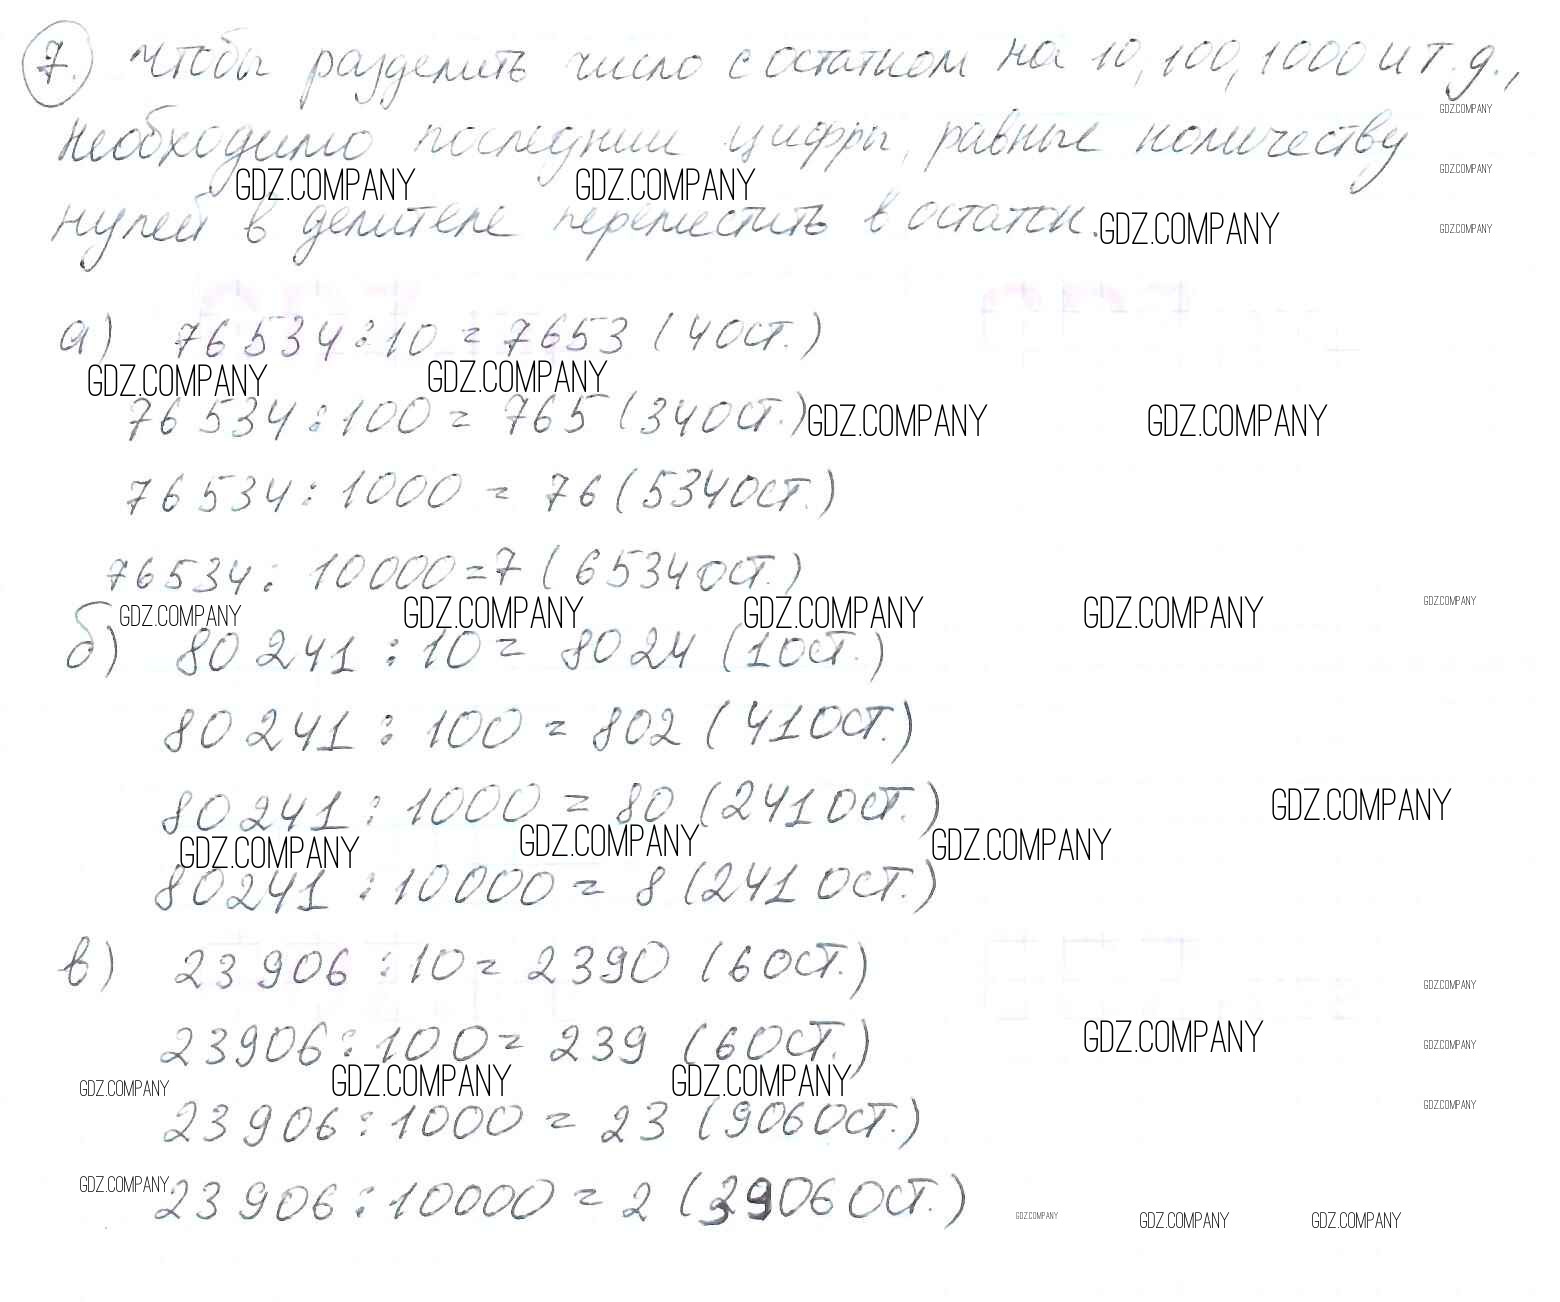 7. Чтобы разделить число с остатком на 10, 100, 1000 и т.д.,
GDZ.COMPANY
необходимо последние цифры, равные количеству
GDZ.COMPANY GDZ.COMPANY GDZ.COMPANY
нулей в делителе переместить в остаток. GDZ.COMPANY GDZ.COMPANY
а) 76534 : 10 = 7653 (4 ост.)
GDZ.COMPANY GDZ.COMPANY
76534 : 100 = 765 (34 ост.) GDZ.COMPANY GDZ.COMPANY
76534 : 1000 = 76 (534 ост.)
76534 : 10000 = 7 (6534 ост.)
GDZ.COMPANY GDZ.COMPANY GDZ.COMPANY GDZ.COMPANY GDZ.COMPANY
б) 80241 : 10 = 8024 (1 ост.)
80241 : 100 = 802 (41 ост.)
80241 : 1000 = 80 (241 ост.) GDZ.COMPANY
GDZ.COMPANY GDZ.COMPANY GDZ.COMPANY
80241 : 10000 = 8 (241 ост.)
в) 23906 : 10 = 2390 (6 ост.)
GDZ.COMPANY
23906 : 100 = 239 (6 ост.) GDZ.COMPANY GDZ.COMPANY
GDZ.COMPANY GDZ.COMPANY GDZ.COMPANY GDZ.COMPANY
23906 : 1000 = 23 (906 ост.)
GDZ.COMPANY
23906 : 10000 = 2 (3906 ост.)
GDZ.COMPANY GDZ.COMPANY GDZ.COMPANY